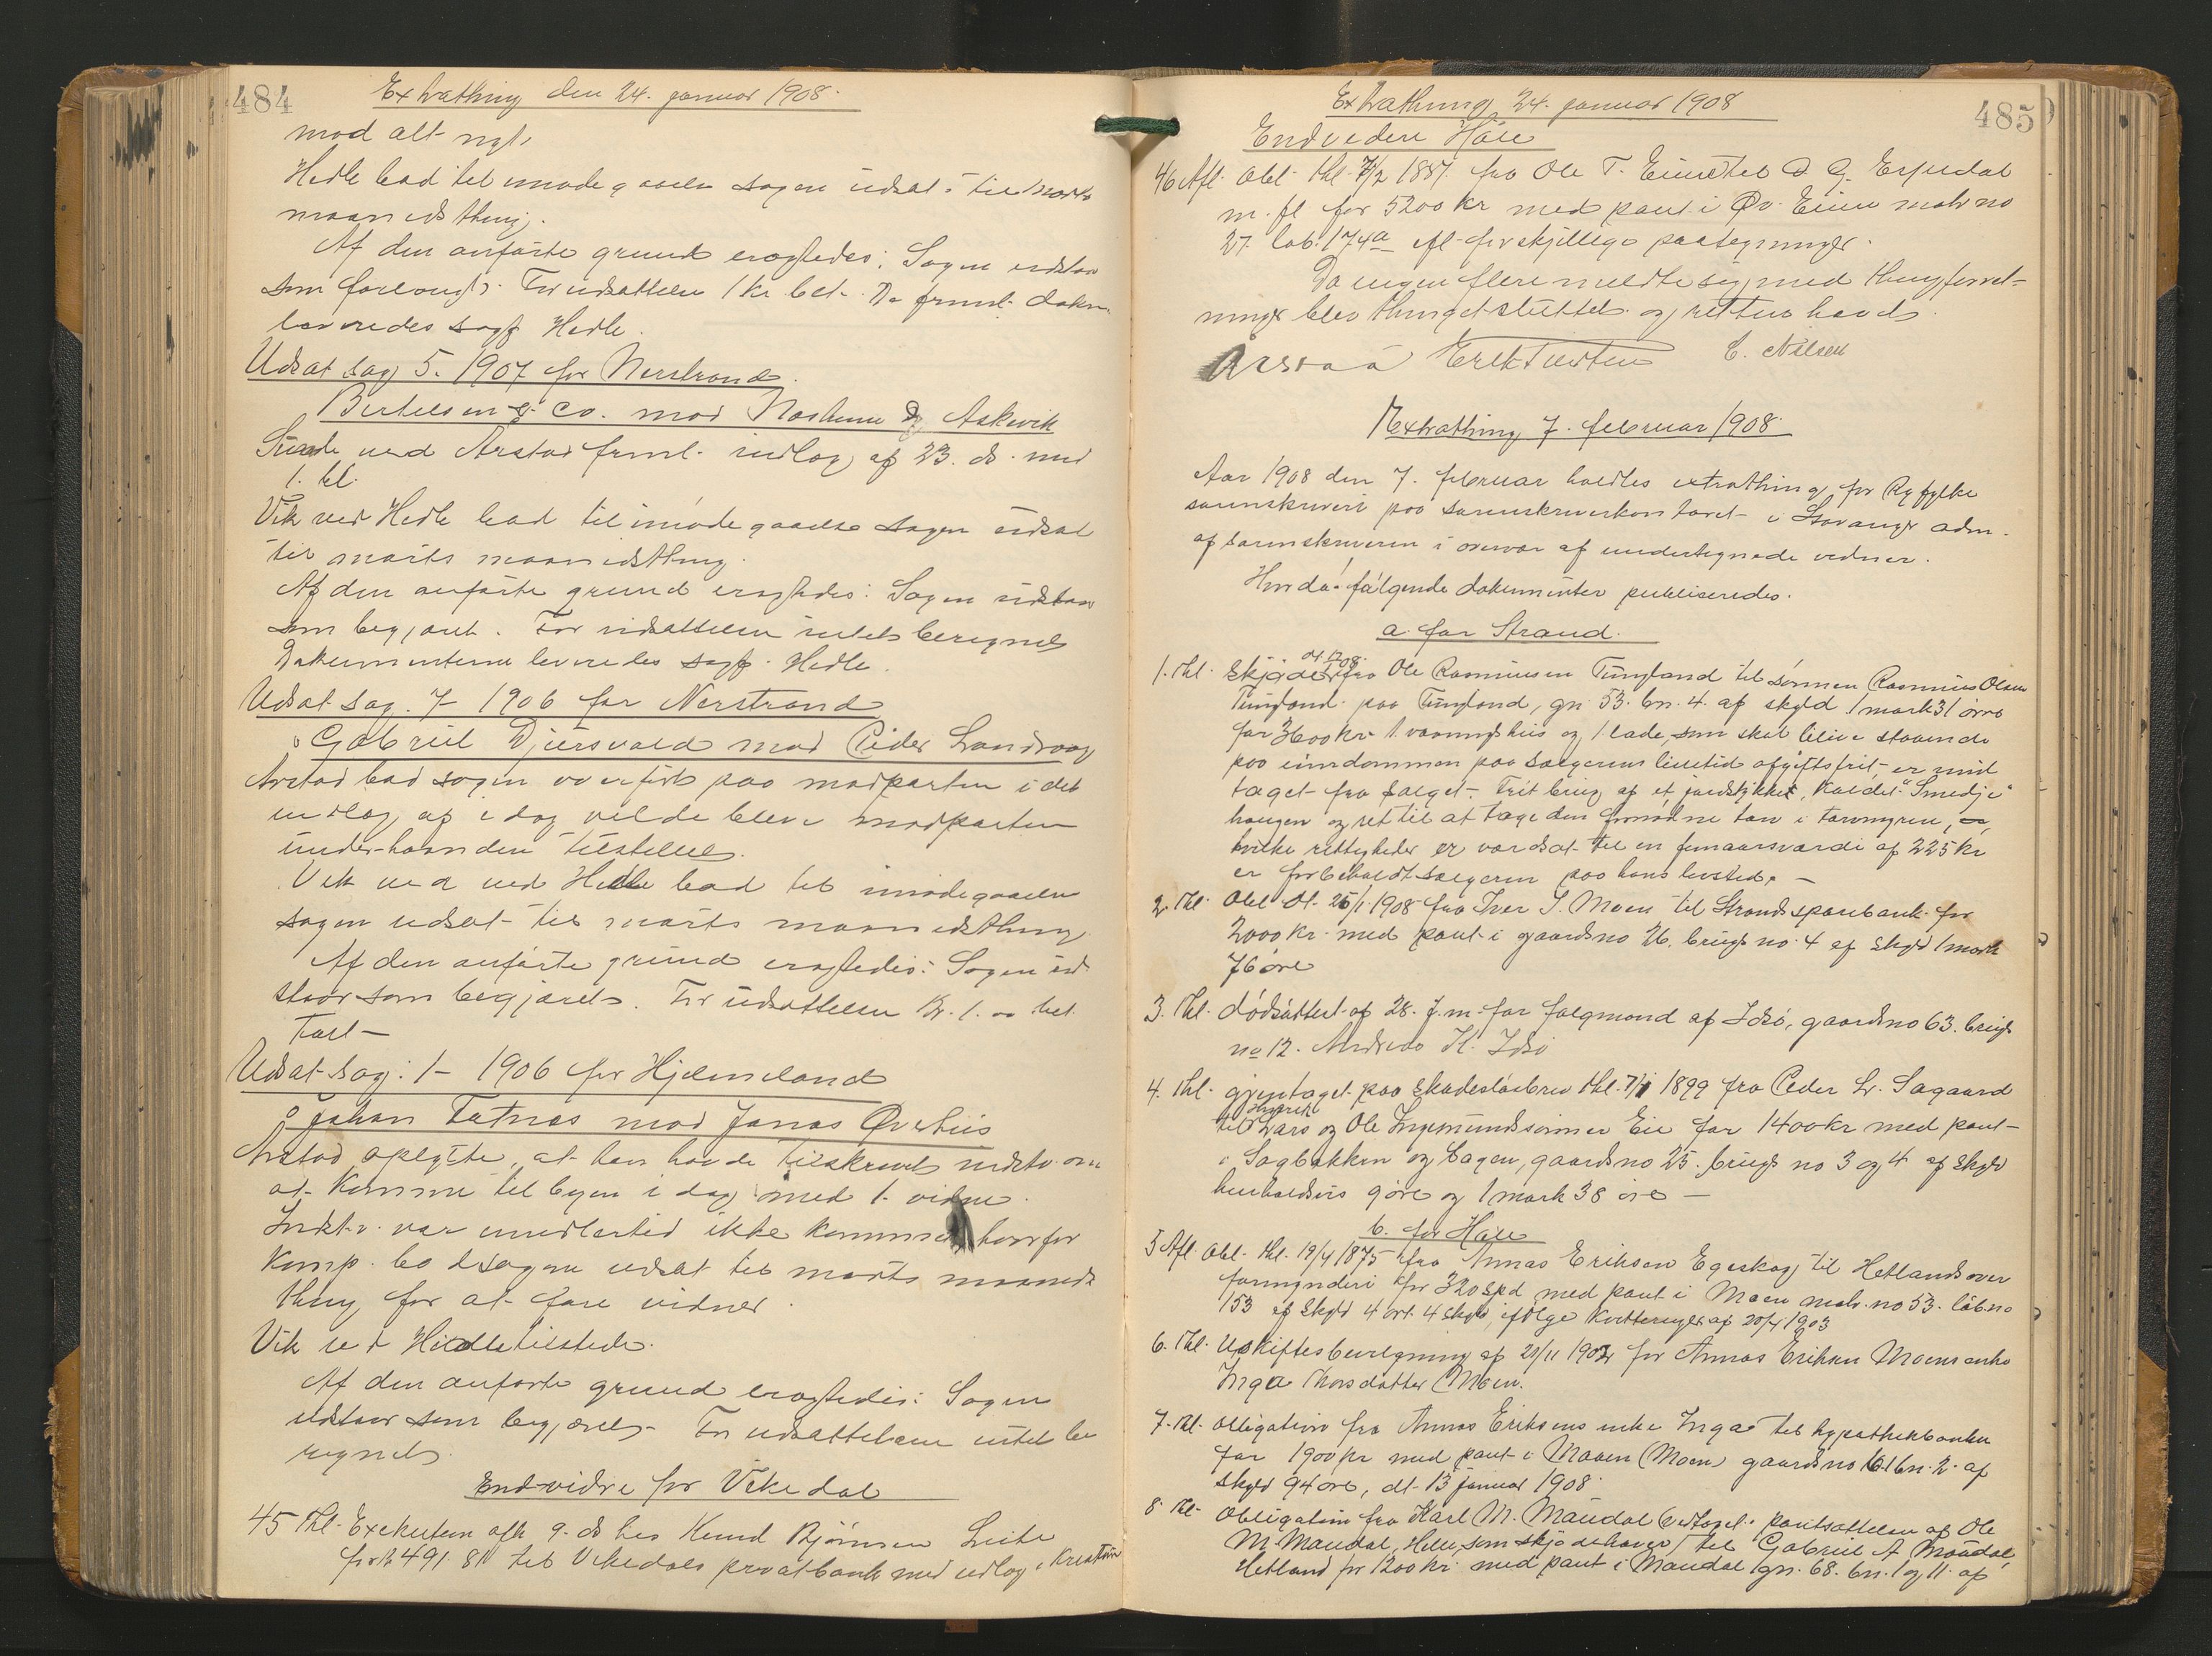 484
Extrathing den 24. januar 1908.
mod alt nyt.
Hidle bad til imødegaaelse sagen udsat til marts
maanedsthing.
Af den anførte grund eragtedes: Sagen udstaar
som forlangt. For udsættelsen 1 kr. bet. De freml. dokum.
leveredes sagf. Hidle.
Udsat sag 5. 1907 for Nerstrand.
Bertelsen & Co. mod Naaden og Askvik
Sunde ved Arstad freml. indlæg af 23. ds. med
1. bl.
Vik ved Hidle bad til imødegaaelse sagen udsat
til marts maanedsthing.
Af den anførte grund eragtedes: Sagen udstaar
som begjært. For udsættelsen intet beregnet
Dokumenterne leveredes sagf. Hidle.
Udsat sag. 7 - 1906 for Nerstrand
Gabriel Djursvold mod Peder Landvaag
Arstad bad sagen overført paa modparten i det
indlæg af i dag vilde blive modparten
underhaanden tilstillet.
Vik ved Hidle bad til imødegaaelse
sagen udsat til marts maanedsthing
Af den anførte grund eragtedes: Sagen ud-
staar som begjæret. For udsættelsen Kr. 1. bet.
talt
Udsat sag: 1 - 1906 for Hjelmeland
Johan Tøtnæs mod Jonas Øvrehus
Arstad oplyste, at han havde tilskrevet indstv. om
at komme til byen i dag med 1. vidne.
Indst. var imidlertid ikke kommet, hvorfor
komp. bad sagen udsat til marts maaneds-
thing for at føre vidner.
Vik ved Hidle tilstede.
Af den anførte grund eragtedes: Sagen
udstaar som begjæret. For udsættelsen intet be
regnet.
Endvidre for Vikedal
45 Thl. Exekution afh. 9. ds hos Knud Bjørnsen Leite
for kr 491. 81 til Vikedals privatbank med udlæg i Kreatur
485
Extrathing 24. januar 1908
Endvidere Høle
46 Afl. Obl. thl. 7/2 1887 fra Ole T. Eime til O. G. Espedal
m. fl. for 5200 kr med pant i Øv. Eime matr no
27. løb. 174a efl. forskjellige paategninger.
Da ingen flere meldte sig med thingforret-
ninger blev thinget sluttet og retten hævet.
Arstad Erik Tveiten C. Nilsen
Extrathing 7. februar 1908.
Aar 1908 den 7. februar holdtes extrathing for Ryfylke
sorenskriveri paa sorenskriverkontoret i Stavanger adm.
af sorenskriveren i overvær af undertegnede vidner.
Hvor da følgende dokumenter publiseredes.
a. for Strand.
1. Thl. Skjøde fra Ole Rasmussen Tungland til sønnen Rasmus Olsen
Tungland paa Tungland, gn. 53. bn. 4. af skyld 1 mark 31 øre
for 3600 kr. 1 vaaningshus og 1 lade, som skal blive staaende
paa eiendommen paa sælgerens livstid afgiftsfrit, er und
taget fra salget. Frit brug af et jordstykke, kaldet "Smedje"
haugen og ret til at tage den fornødne torv i torvmyren,
hvilke rettigheder er værdsat til en femaarsværdi af 225 kr
er forbeholdt sælgeren paa hans livstid. —
2. Thl. Obl. dt. 25/1 1908 fra Iver S. Moen til Strands sparebank for
2000 kr. med pant i gaardsno 26. brugsno 4 af skyld 1 mark
76 øre
3. Thl. Dødsattest af 28. f. m. for folgmand af Idsø, gaardsno 63. brugs
no 12. Andreas K. Idsø
4. Thl. gjentaget paa skadesløsbrev thl. 7/1 1899 fra Peder L. Sagaard
til Lars og Ole Ingemundssønner Eie for 1400 kr med pant
i Sagbakken og Sagen, gaardsno 25. brugs no 3 og 4 af skyld
henholdsvis 9 øre og 1 mark 38 øre —
b. for Høle
5 Afl. Obl. thl. 19/4 1875 fra Annas Eriksen Egeskog til Hetlands over
formynderi for 320 spd med pant i Moen matr. no 53. løbno
153 af skyld 4 ort. 4 skill, ifølge kvitteringer af 20/4 1903
6. Thl. Uskiftesbevilgning af 21/11 1902 for Annas Eriksen Moens enke
Inga Thorsdatter Moen.
7. Thl. Obligation fra Annas Eriksens enke Inga til hypothekbanken
for 1900 kr med pant i Moen (Moen) gaardsno 61 bn. 2. af
skyld 94 øre, dt. 13 januar 1908.
8. Thl. Obligation fra Karl M. Maudal (vedtaget pantsættelsen af Ole
M. Maudal, Helle, som skjødehaver) til Gabriel A Maudal,
Hetland for 1200 kr. med pant i Maudal gn. 68. bn. 1 og 11. af